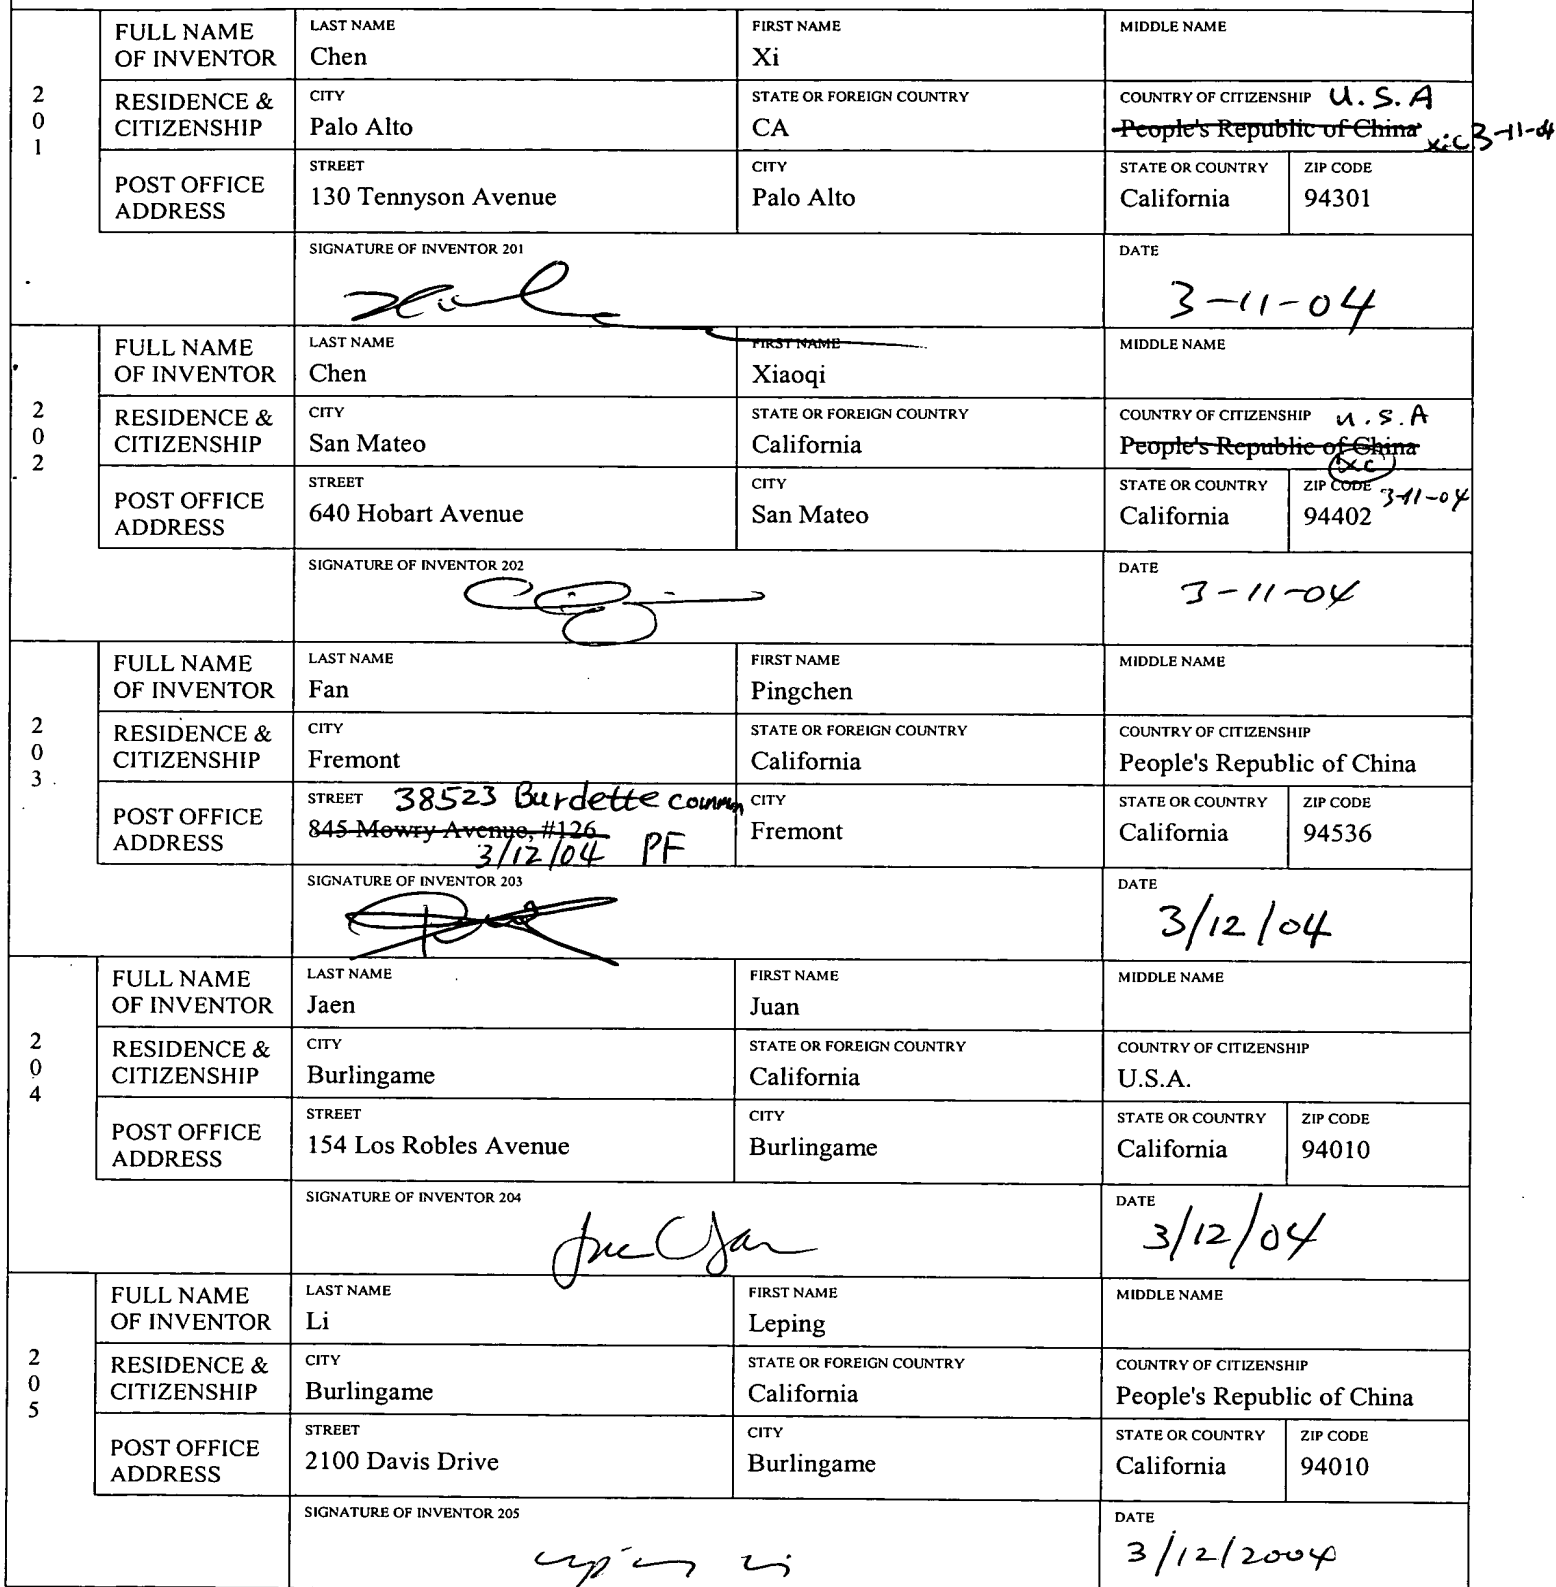 201
FULL NAME OF INVENTOR
LAST NAME
Chen
FIRST NAME
Xi
MIDDLE NAME
RESIDENCE & CITIZENSHIP
CITY
Palo Alto
STATE OR FOREIGN COUNTRY
CA
COUNTRY OF CITIZENSHIP U.S.A
People's Republic of China xic 3-11-04
POST OFFICE ADDRESS
STREET
130 Tennyson Avenue
CITY
Palo Alto
STATE OR COUNTRY
California
ZIP CODE
94301
SIGNATURE OF INVENTOR 201
DATE
3-11-04
202
FULL NAME OF INVENTOR
LAST NAME
Chen
FIRST NAME
Xiaoqi
MIDDLE NAME
RESIDENCE & CITIZENSHIP
CITY
San Mateo
STATE OR FOREIGN COUNTRY
California
COUNTRY OF CITIZENSHIP U.S.A
People's Republic of China
xc
3-11-04
POST OFFICE ADDRESS
STREET
640 Hobart Avenue
CITY
San Mateo
STATE OR COUNTRY
California
ZIP CODE
94402
SIGNATURE OF INVENTOR 202
DATE
3-11-04
203
FULL NAME OF INVENTOR
LAST NAME
Fan
FIRST NAME
Pingchen
MIDDLE NAME
RESIDENCE & CITIZENSHIP
CITY
Fremont
STATE OR FOREIGN COUNTRY
California
COUNTRY OF CITIZENSHIP
People's Republic of China
POST OFFICE ADDRESS
STREET 38523 Burdette common
845 Mowry Avenue, #126
3/12/04 PF
CITY
Fremont
STATE OR COUNTRY
California
ZIP CODE
94536
SIGNATURE OF INVENTOR 203
DATE
3/12/04
204
FULL NAME OF INVENTOR
LAST NAME
Jaen
FIRST NAME
Juan
MIDDLE NAME
RESIDENCE & CITIZENSHIP
CITY
Burlingame
STATE OR FOREIGN COUNTRY
California
COUNTRY OF CITIZENSHIP
U.S.A.
POST OFFICE ADDRESS
STREET
154 Los Robles Avenue
CITY
Burlingame
STATE OR COUNTRY
California
ZIP CODE
94010
SIGNATURE OF INVENTOR 204
DATE
3/12/04
205
FULL NAME OF INVENTOR
LAST NAME
Li
FIRST NAME
Leping
MIDDLE NAME
RESIDENCE & CITIZENSHIP
CITY
Burlingame
STATE OR FOREIGN COUNTRY
California
COUNTRY OF CITIZENSHIP
People's Republic of China
POST OFFICE ADDRESS
STREET
2100 Davis Drive
CITY
Burlingame
STATE OR COUNTRY
California
ZIP CODE
94010
SIGNATURE OF INVENTOR 205
DATE
3/12/2004